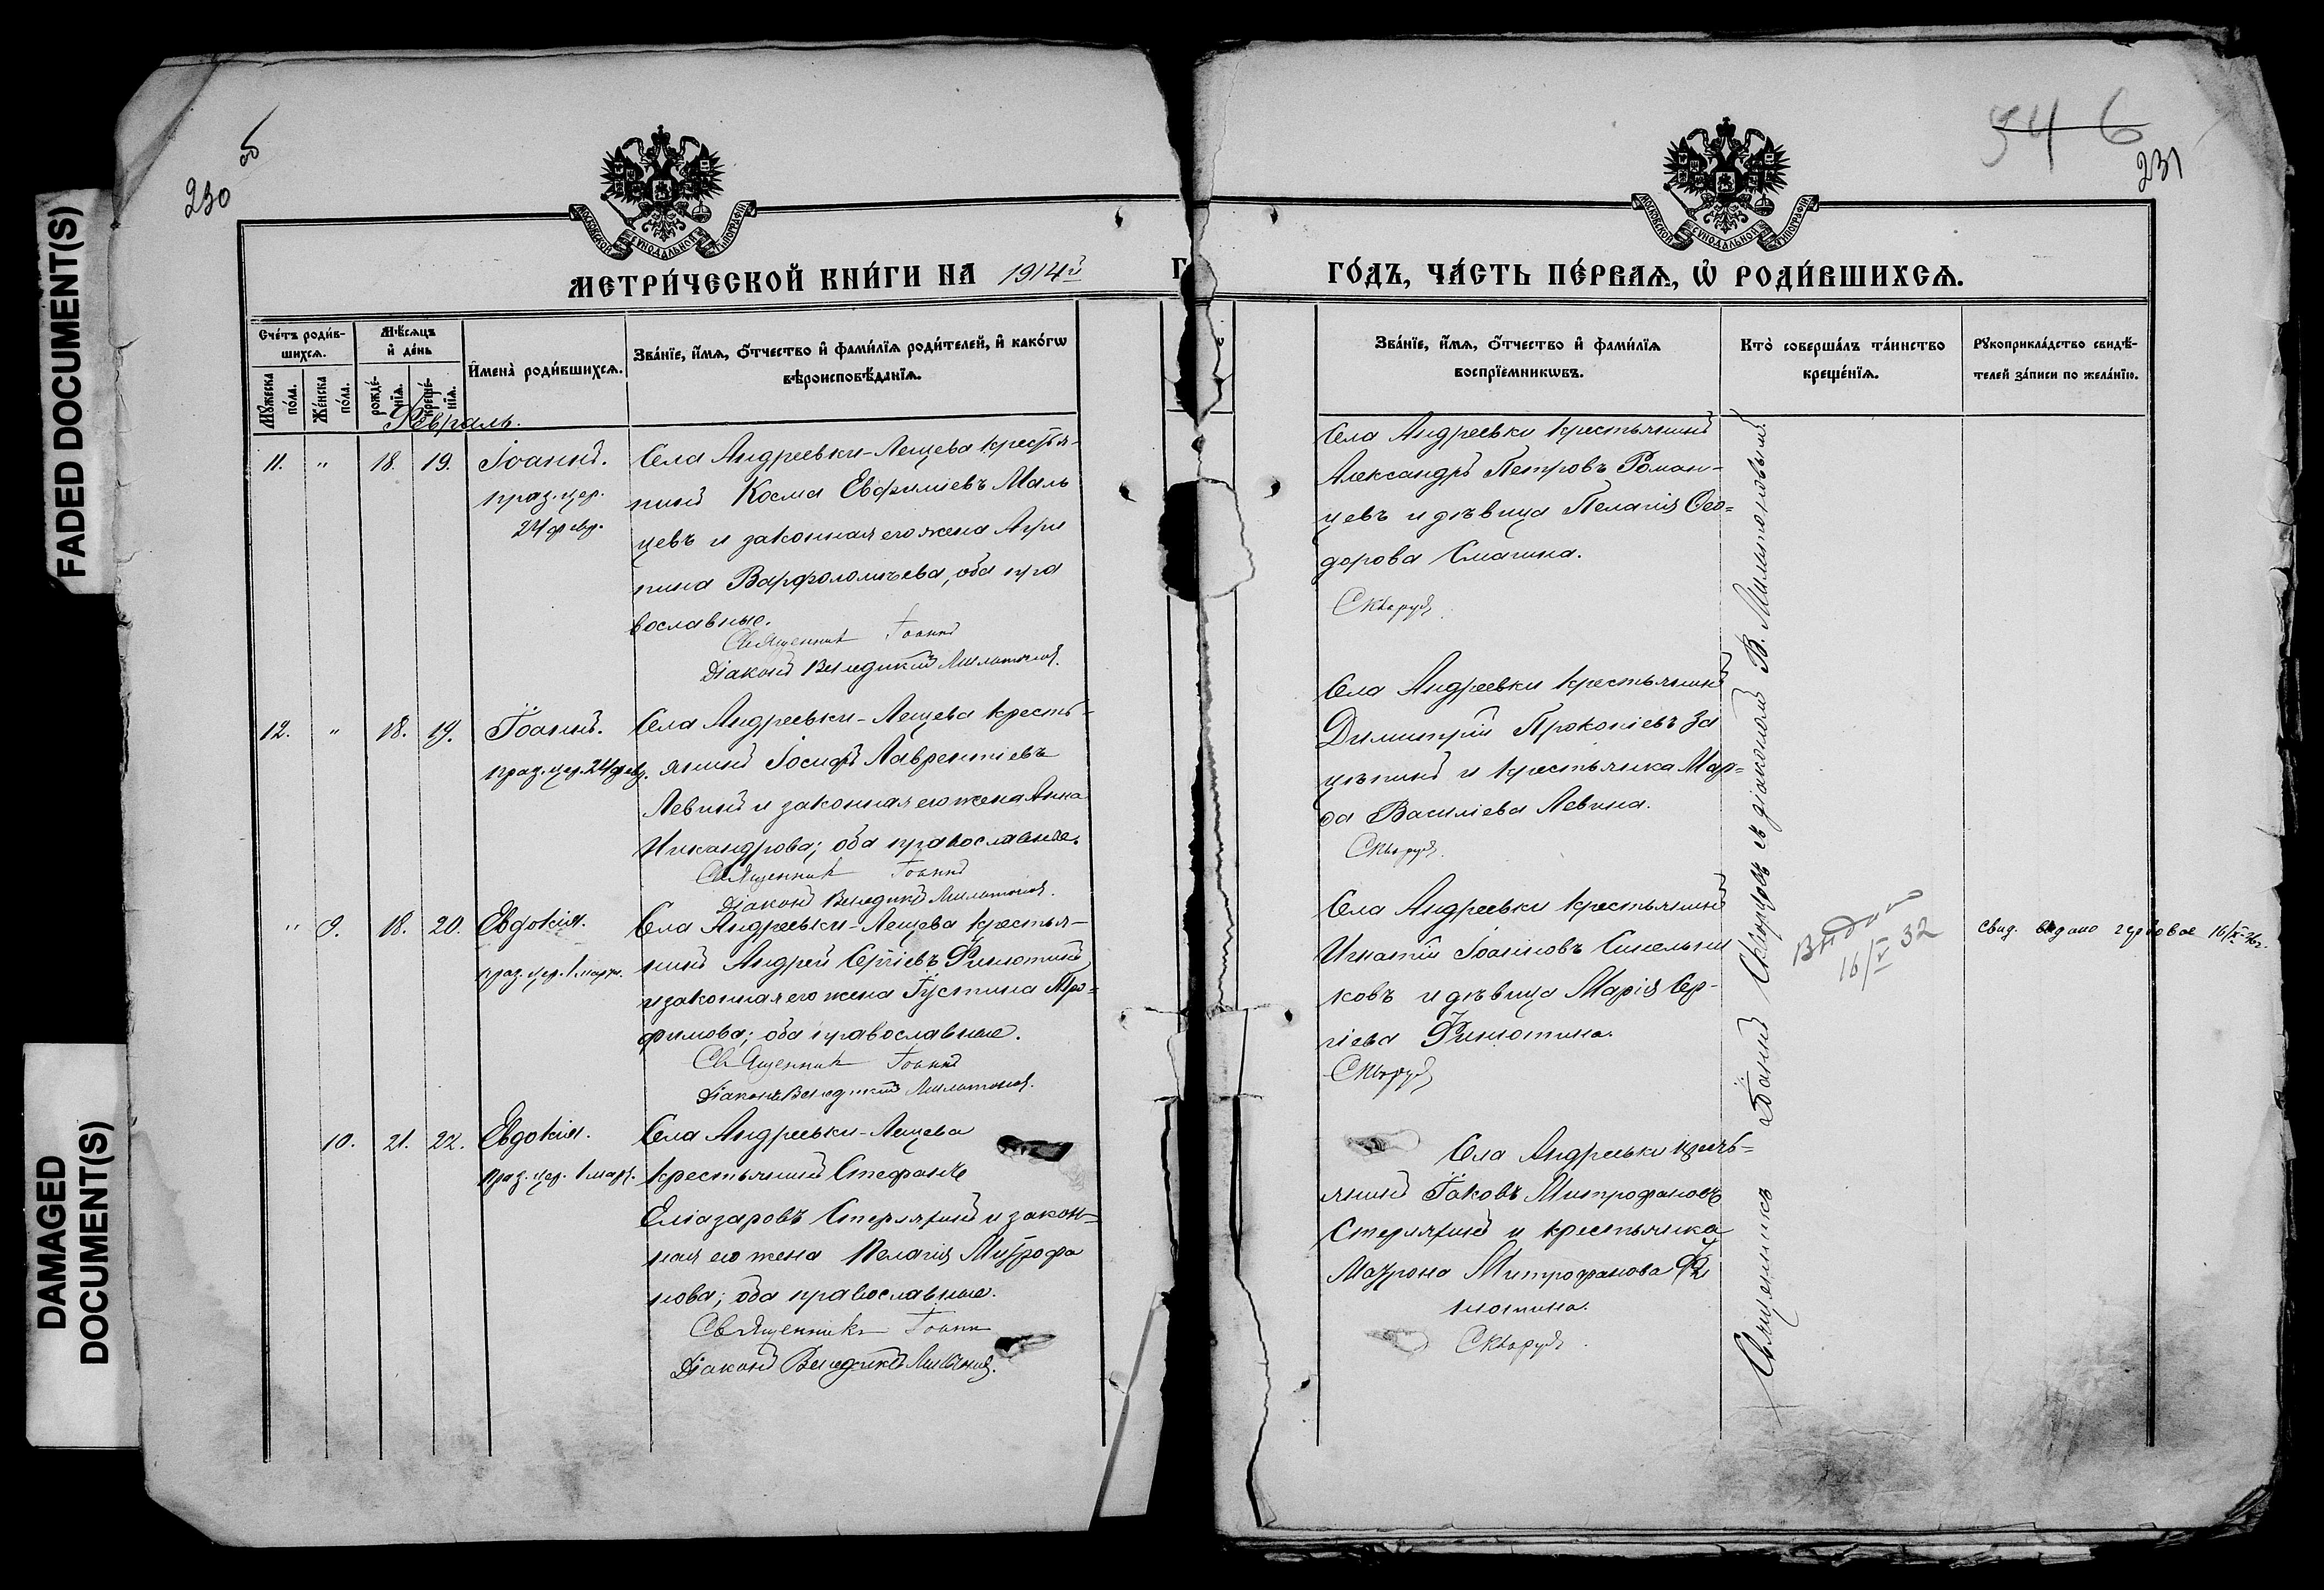 FADED DOCUMENT(S)
DAMAGED
DOCUMENT(S)
230
об
МОСКОВСКОЙ СѴНОДАЛЬНОЙ ТИПОГРАФІИ
МЕТРИ́ЧЕСКОЙ КНИ́ГИ НА 1914й
Сче́тъ роди́в-
шихся.
Мꙋ́жеска по́ла.
Же́нска по́ла.
Мѣ́сяцъ
и҆ де́нь
рожде́-
нїѧ.
креще́-
нїѧ.
И҆мена̀ роди́вшихсѧ.
Зва́нїе, и҆́мѧ, ѻ҆́тчество и҆ фами́лїѧ роди́телей, и҆ како́гѡ
вѣроисповѣ́данїѧ.
Февраль.
11. " 18. 19. Іоаннъ.
праз. цер.
24 февр.
Села Андреевки-Лещева крестья-
нинъ Косма Евфиміевъ Маль
цевъ и законная его жена Агри
пина Варфоломѣева, оба пра
вославные.
Священникъ Іоаннъ
Діаконъ Венедиктъ Милитоновъ.
12. " 18. 19. Іоаннъ.
праз. цер. 24 февр.
Села Андреевки-Лещева кресть-
янинъ Іосифъ Лаврентіевъ
Левинъ и законная его жена Анна
Никандрова; оба православные.
Священникъ Іоаннъ
Діаконъ Венедиктъ Милитоновъ.
" 9. 18. 20. Евдокія.
праз. цер. 1 марта.
Села Андреевки-Лещева крестья-
нинъ Андрей Сергіевъ Финютинъ
и законная его жена Іустина Тро-
фимова; оба православные.
Священникъ Іоаннъ
Діаконъ Венедиктъ Милитоновъ.
10. 21. 22. Евдокія.
праз. цер. 1 март.
Села Андреевки-Лещева
крестьянинъ Стефанъ
Еліазаровъ Стерляхинъ и закон-
ная его жена Пелагія Митрофа
нова; оба православные.
Священникъ Іоаннъ
Діаконъ Венедиктъ Милитоновъ.
54 6
231
МОСКОВСКОЙ СѴНОДАЛЬНОЙ ТИПОГРАФІИ
Г
ГО́ДЪ, ЧА́СТЬ ПЕ́РВАѦ, Ѡ҆ РОДИ́ВШИХСѦ.
Зва́нїе, и҆́мѧ, ѻ҆́тчество и҆ фами́лїѧ
воспрїе́мникѡвъ.
Кто̀ соверша́лъ та́инство
креще́нїѧ.
Рꙋкоприкла́дство свидѣ́-
телей за́писи по жела́нїю.
Села Андреевки крестьянинъ
Александръ Петровъ Роман-
цевъ и дѣвица Пелагія Ѳео-
дорова Смагина.
Скворцовъ
Села Андреевки крестьянинъ
Димитрій Прокопіевъ За
цѣпинъ и крестьянка Мар-
ѳа Василіева Левина.
Скворцовъ
Села Андреевки крестьянинъ
Игнатій Іоанновъ Синельни
ковъ и дѣвица Марія Сер-
гіева Финютина.
Скворцовъ
Села Андреевки кресть-
янинъ Іаковъ Митрофановъ
Стерляхинъ и крестьянка
Матрона Митрофанова Фи
нютина.
Скворцовъ
Священникъ Іоаннъ Скворцовъ съ діакономъ В. Милитоновымъ
Выдано
16/V 32
Свид. выдано гербовое 16/IX-26г.